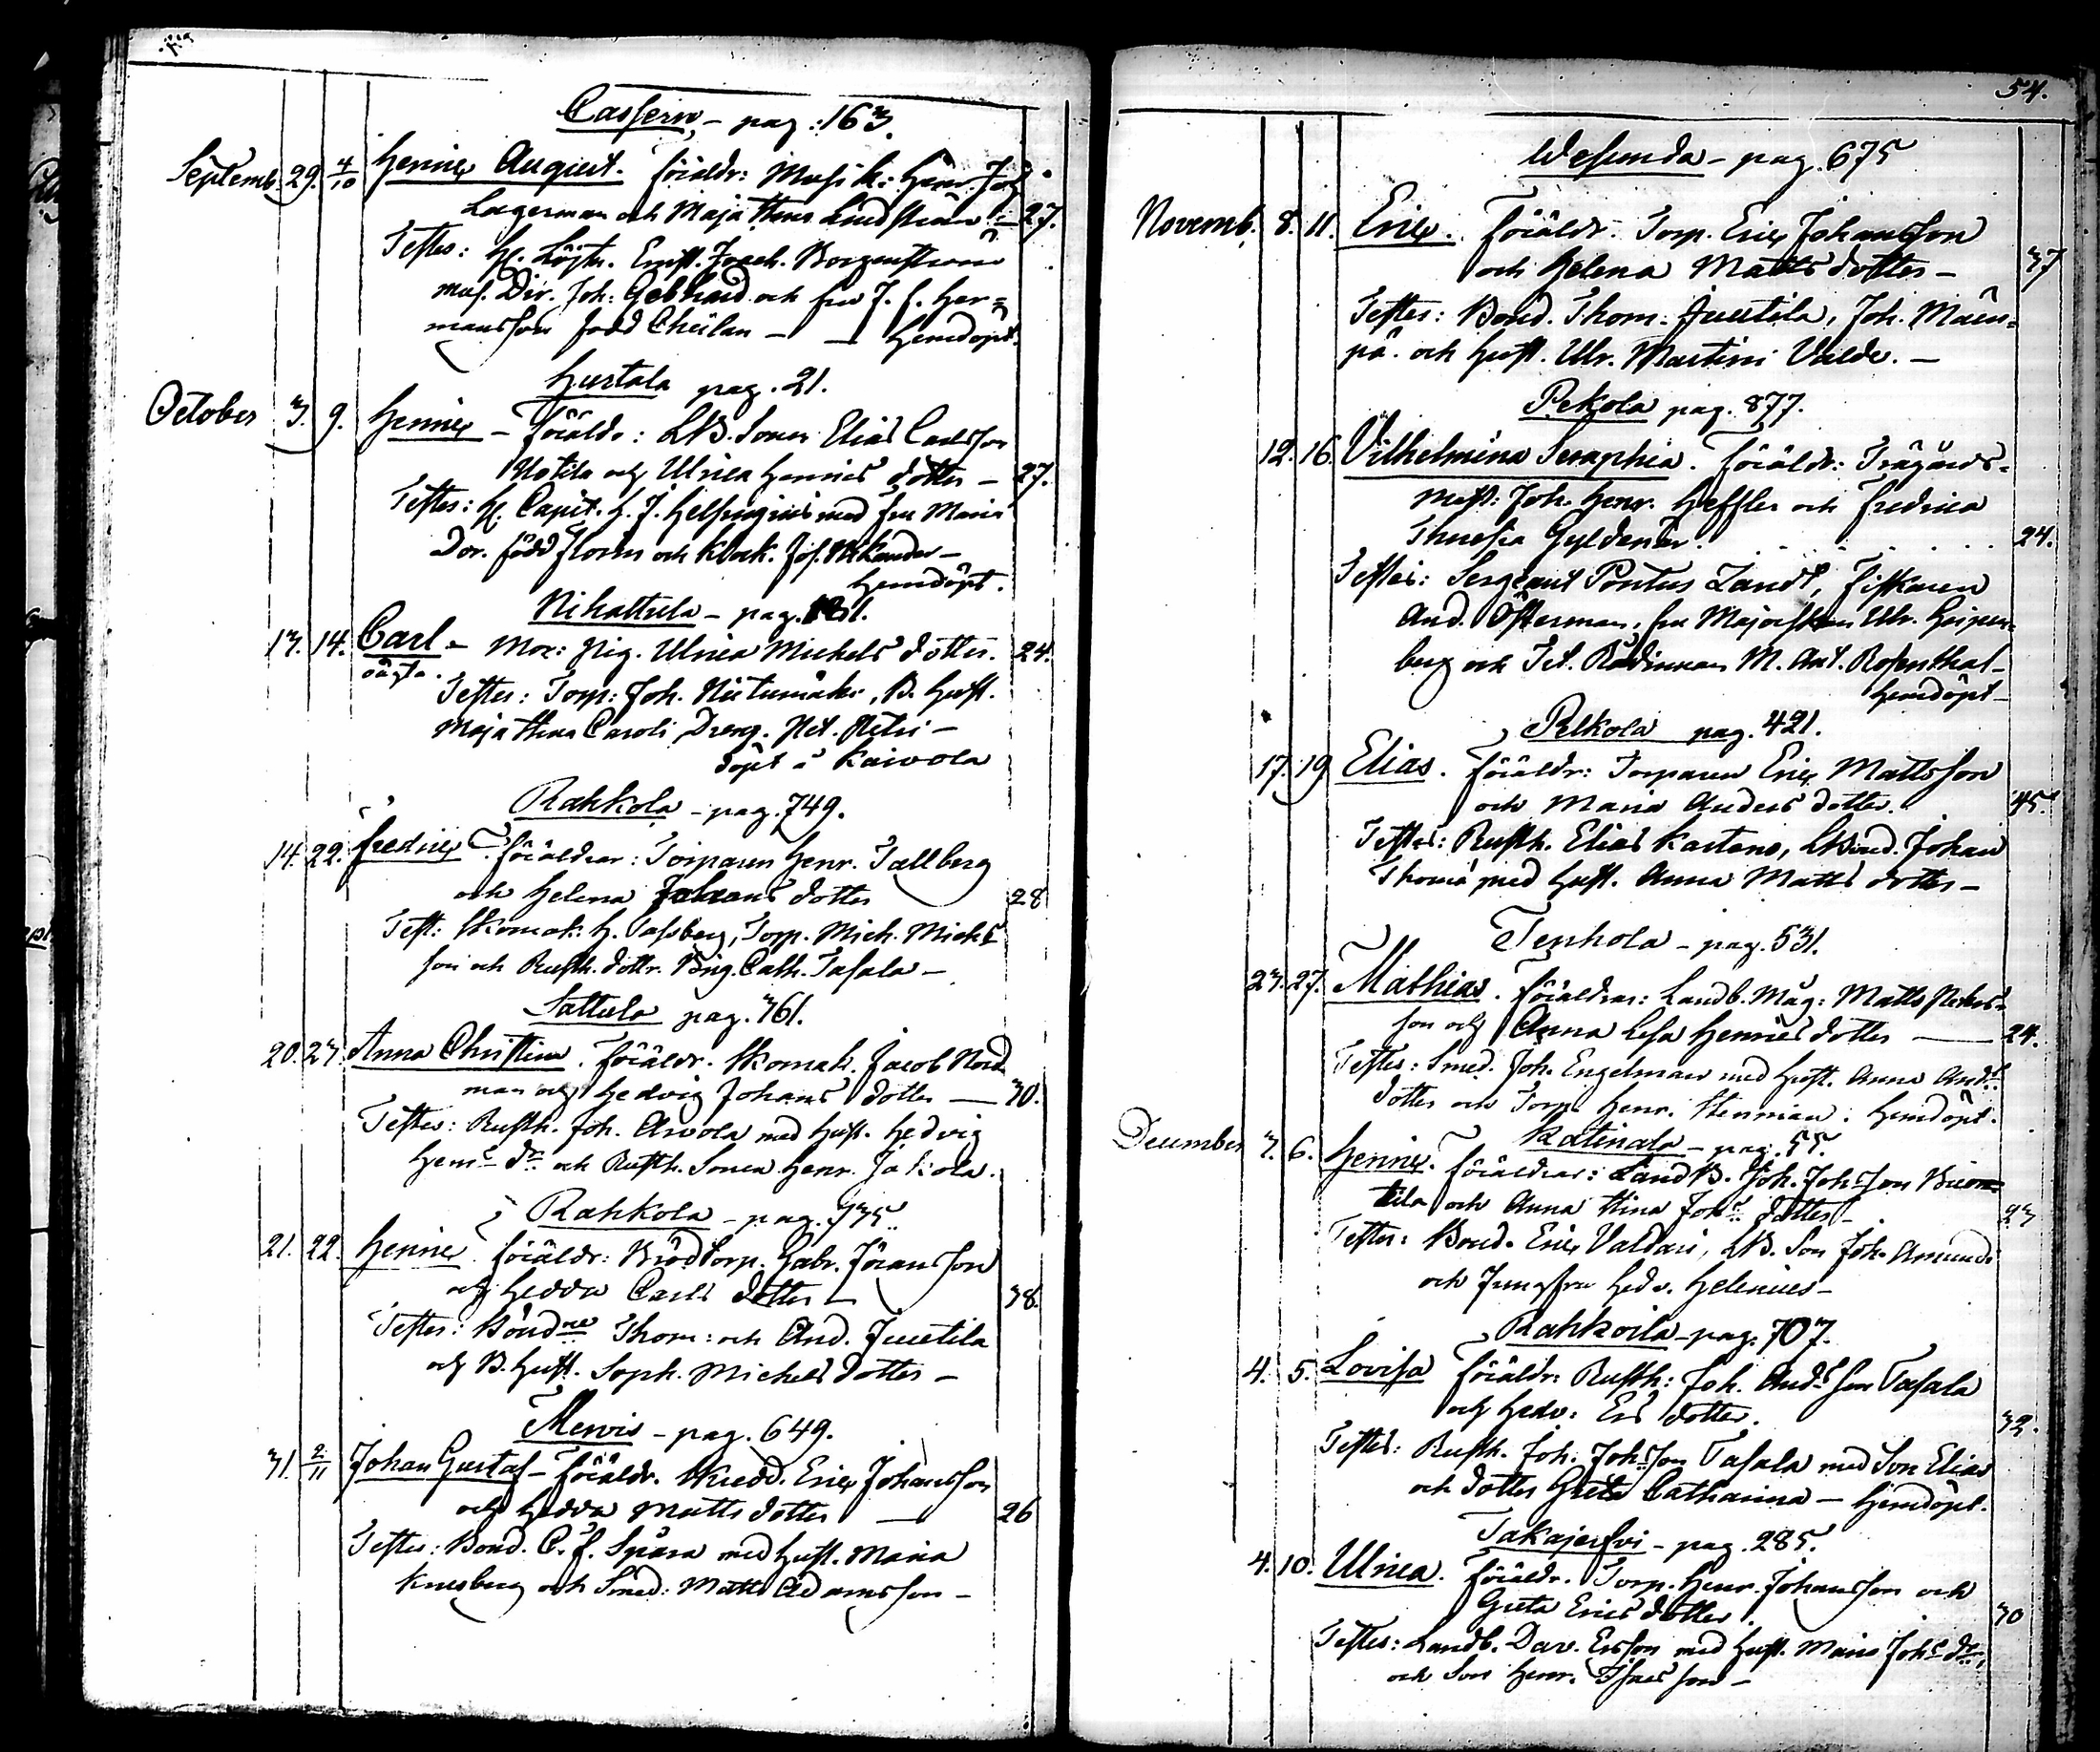 Cassern, - pag: 163.
Septemb. 29. 4/10 Henric August. föräldr: Musik: Henr. Joh
Lagerman och Maja Stina Lindström - 27.
Testes: H. Löjtn. Ernst. Joach. Borgenström
mus. Dir. Joh: Gebhard och fru J. f. Her=
mansson född Cheilan - Hemdöpt.
Hurtala pag. 21.
October 3. 9. Henric - föräldr: LB. Sonen Elias Carlsson
Uotila och Ulrica Henrics dotter - 27.
Testes: H. Capit. H. J. Helsingius med fru Maria
Dor. född Florin och Klock. Jos. Nikander -
Hemdöpt.
Nihattula - pag. 131.
13. 14. Carl - Mor: Pig. Ulrica Michels dotter. 24.
oägta.
Testes: Torp: Joh. Niitumäki, B. Hust.
Maja Stina Caroli, Dreng. Pet. Petri -
döpt i Kaivola
Rahkola - pag. 749.
14. 22. Fredric. föräldrar: Torparen Henr. Tallberg
och Helena Johans dotter 28
Test: Skomak. H. Tassberg, Torp. Mich. Michs
son och Rusth. dottr. Brig. Cath. Tasala -
Sattula pag. 361.
20. 23. Anna Christina. föräldr. Skomak. Jacob Nord
man och Hedvig Johans dotter - 30.
Testes: Rusth. Joh. Arvola med Hust. Hedvig
Hem dr och Rusth. Sonen Henr. Jakola.
Rahkola - pag. 735.
21. 22. Henric föräldr: Brödtorp. Gabr. Jöransson
och Hedda Carls dotter - 38.
Testes: Bönd:ne Thom: och And. Juutila
och B. Hust. Soph. Michels dotter -
Mervis - pag. 649.
31. 2/11 Johan Gustaf - föräldr. Skredd. Eric Johansson
och Hedda Matts dotter - 26
Testes: Bond. C. J. Spåra med Hust. Maria
Knesberg och Smed: Matts Adamsson -
54.
Wesunda - pag. 675
Novemb. 8. 11. Eric. föräldr. Torp. Eric Johansson
och Helena Matts dotter - 37
Testes: Bond. Thom. Juutila, Joh. Mäen=
pä. och Hust. Ulr. Martini Valde. -
Pekola pag. 877.
12. 16. Vilhelmina Seraphia. föräldr: Trägårds=
mest: Joh. Henr. Heffler och Fredrica
Gyldenär. 24.
Testes: Sergeant Pontus Landt, Fiskaren
And. Österman, fru Majorskan Ulr. Gripen=
berg och Tit. Rådinnan M. Ant. Rosenthal -
Hemdöpt -
Pelkola pag. 421.
17. 19 Elias. föräldr: Torparen Eric Mattsson
och Maria Anders dotter. 45.
Testes: Rusth. Elias Kartano, LBond. Johan
Thomä med Hust. Anna Matts dotter -
Tenhola - pag. 531.
23. 27. Mathias. föräldrar: Landb. Måg: Matts
son och Anna Lisa Henrics dotter - 24.
Testes: Smed. Joh. Engelman med Hust. Anna Ands
dotter och Torp. Henr. Stenman: Hemdöpt.
Katinala - pag. 55.
December 3. 6. Henric. föräldrar: LandB. Joh. Johsson
tila och Anna Stina Johs dotter - 23
Testes: Bond. Eric Valdari, LB. Son Joh. Amundi
och Jungfru Hedv. Helenius -
Rahkoila - pag. 707.
4. 5. Lovisa föräldr: Rusth: Joh. Ands son Tasala
och Hedv: Ers dotter. 32.
Testes: Rusth. Joh. Johsson Tasala med Son Elias
och dotter Greta Catharina - Hemdöpt.
Takajerfvi - pag. 285.
4. 10. Ulrica. föräldr. Torp. Henr. Johansson och
Greta Erics dotter. 30
Testes: Landb. Dav. Ersson med Hust. Maria Johs dr,
och Son Henr. Isacsson -